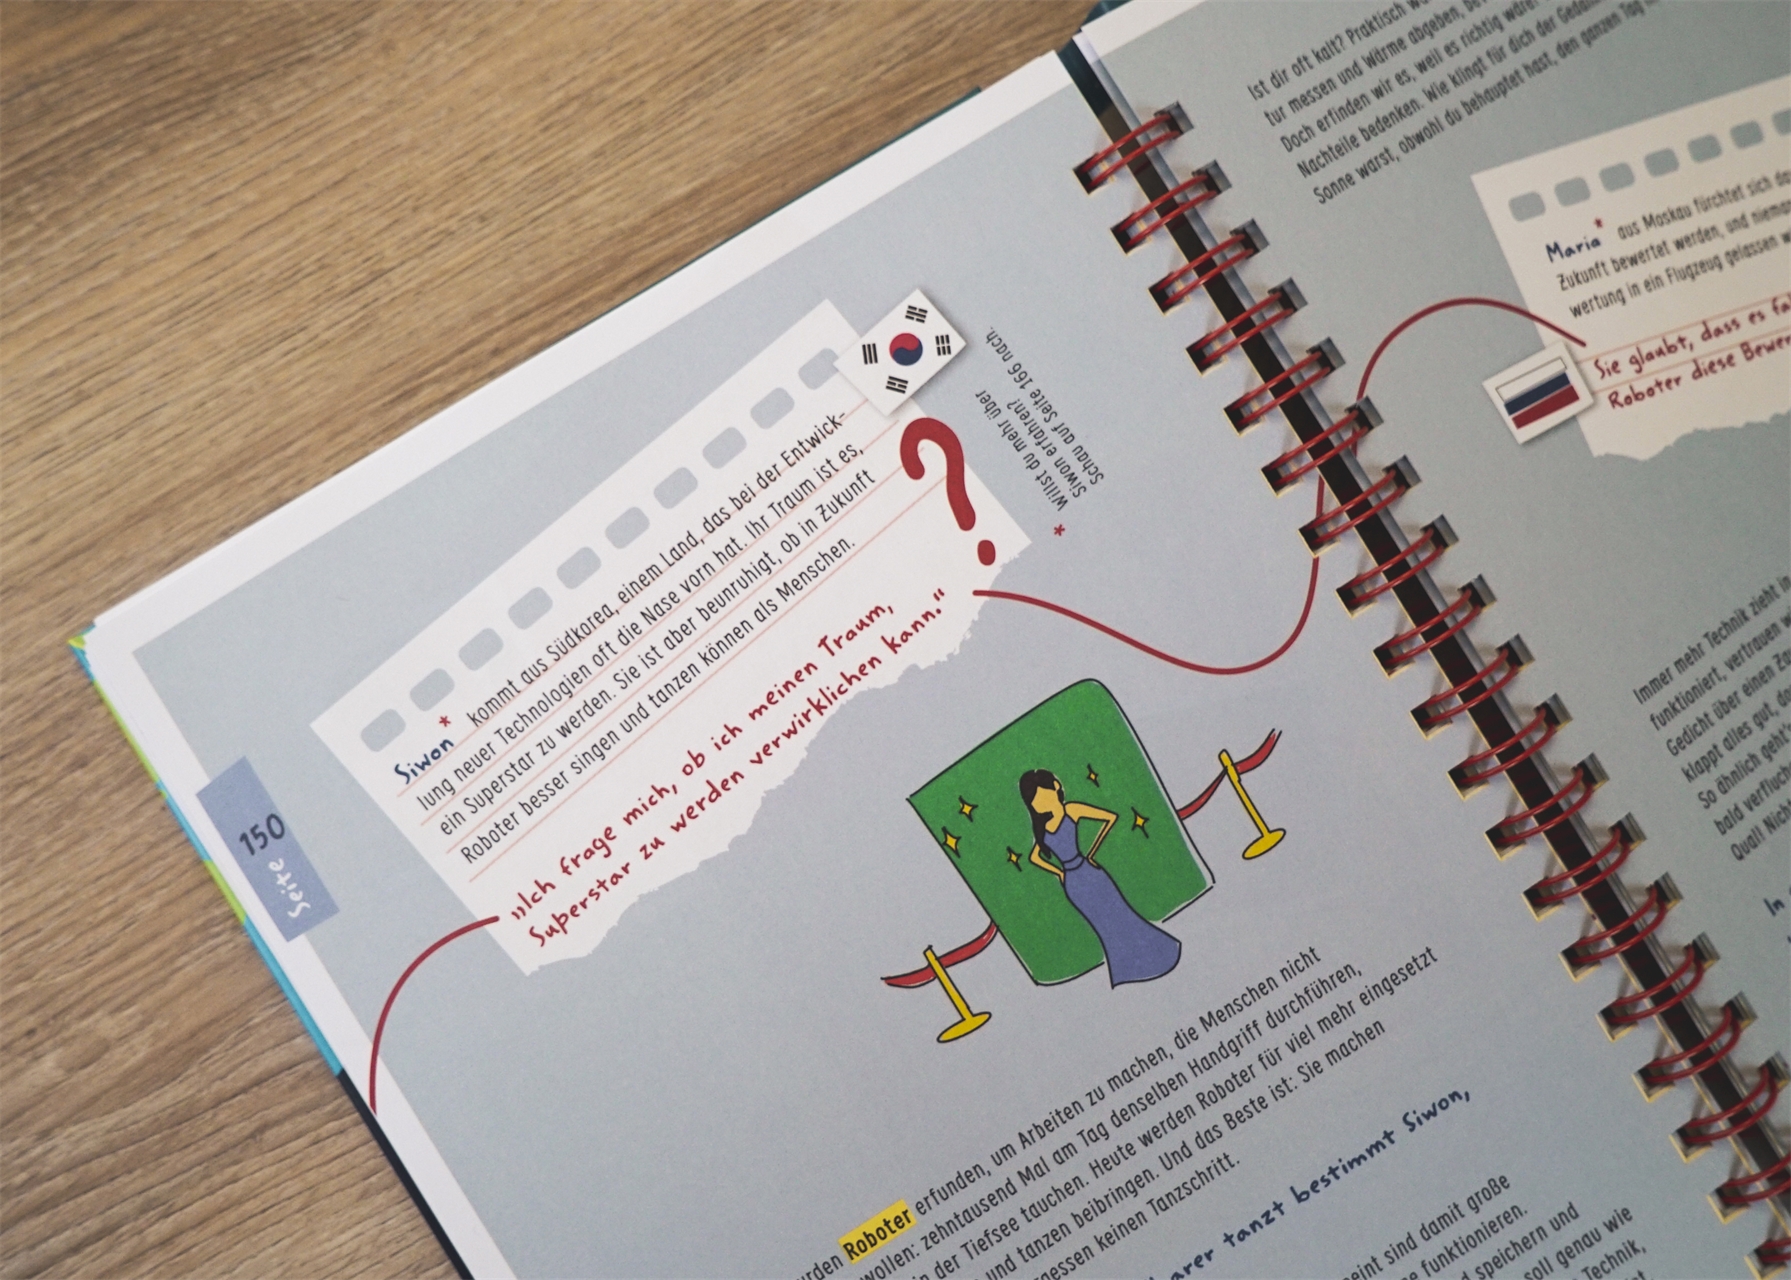 Siwon* kommt aus Südkorea, einem Land, das bei der Entwick-
lung neuer Technologien oft die Nase vorn hat. Ihr Traum ist es,
ein Superstar zu werden. Sie ist aber beunruhigt, ob in Zukunft
Roboter besser singen und tanzen können als Menschen.
?
„Ich frage mich, ob ich meinen Traum,
Superstar zu werden verwirklichen kann.“
* Willst du mehr über
Siwon erfahren?
Schau auf Seite 166 nach.
Seite 150
Roboter erfunden, um Arbeiten zu machen, die Menschen nicht
wollen: zehntausend Mal am Tag denselben Handgriff durchführen,
in der Tiefsee tauchen. Heute werden Roboter für viel mehr eingesetzt
und tanzen beibringen. Und das Beste ist: Sie machen
keinen Tanzschritt.
tanzt bestimmt Siwon,
sind damit große
funktionieren.
speichern und
soll genau wie
Technik,
Ist dir oft kalt? Praktisch
tur messen und Wärme abgeben,
Doch erfinden wir es, weil es richtig
Nachteile bedenken. Wie klingt für dich der
Sonne warst, obwohl du behauptet hast, den ganzen Tag
Maria* aus Moskau fürchtet sich
Zukunft bewertet werden, und
wertung in ein Flugzeug gelassen
Sie glaubt, dass es
Roboter diese
Immer mehr Technik zieht
funktioniert, vertrauen
Gedicht über einen
klappt alles gut,
So ähnlich geht
bald
Qual!
In